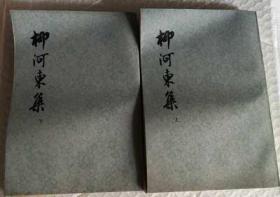 柳河東集
上
柳河東集
下